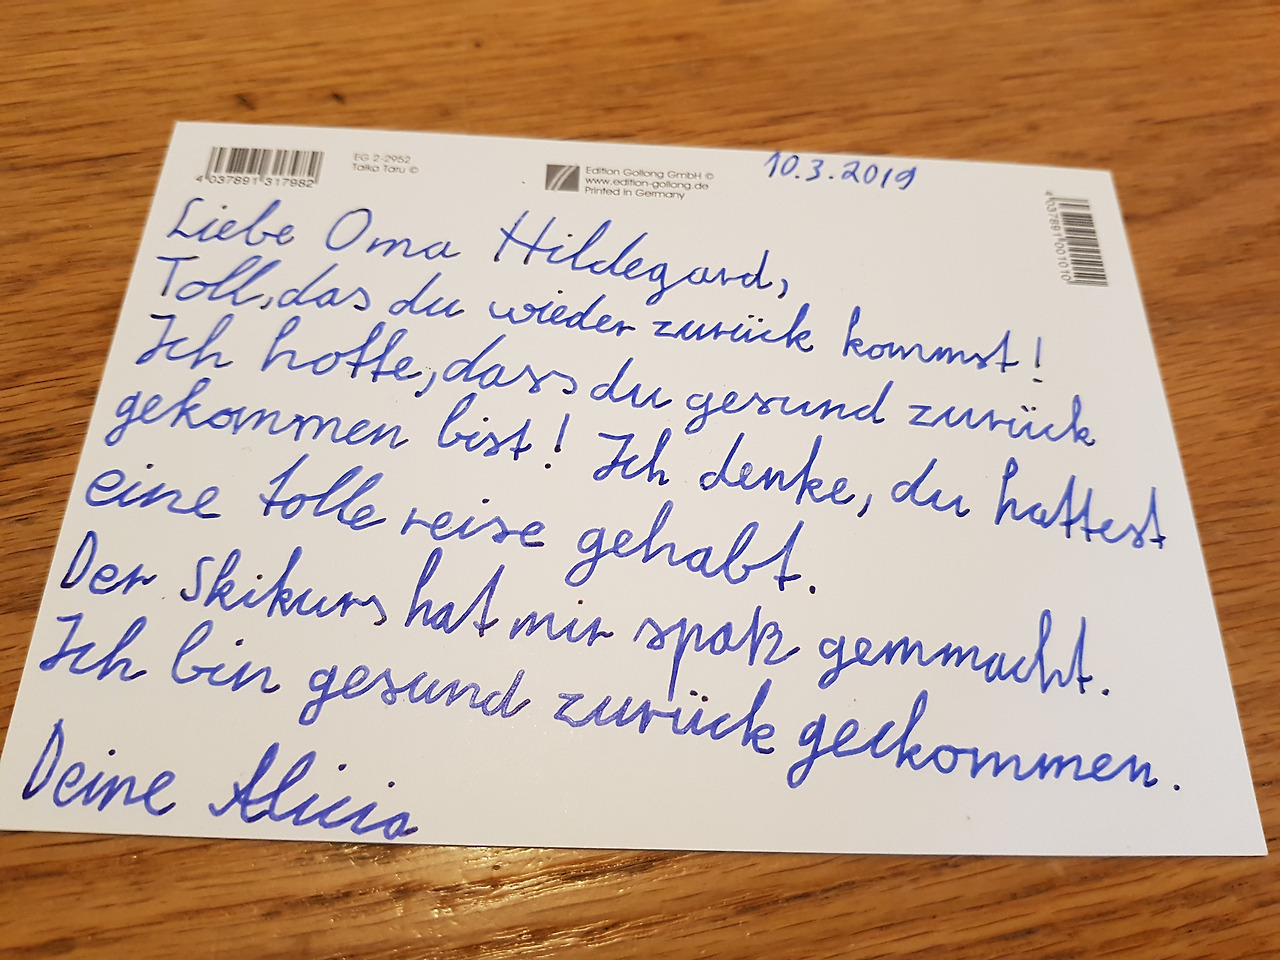 4 037891 317982
EG 2-2952
Taika Taru ©
Edition Gollong GmbH ©
www.edition-gollong.de
Printed in Germany
10.3.2019
4 037891 001010
Liebe Oma Hildegard,
Toll, das du wieder zurück kommst!
Ich hoffe, dass du gesund zurück
gekommen bist! Ich denke, du hattest
eine tolle reise gehabt.
Der Skikurs hat mir spaß gemmacht.
Ich bin gesund zurück geckommen.
Deine Alicia